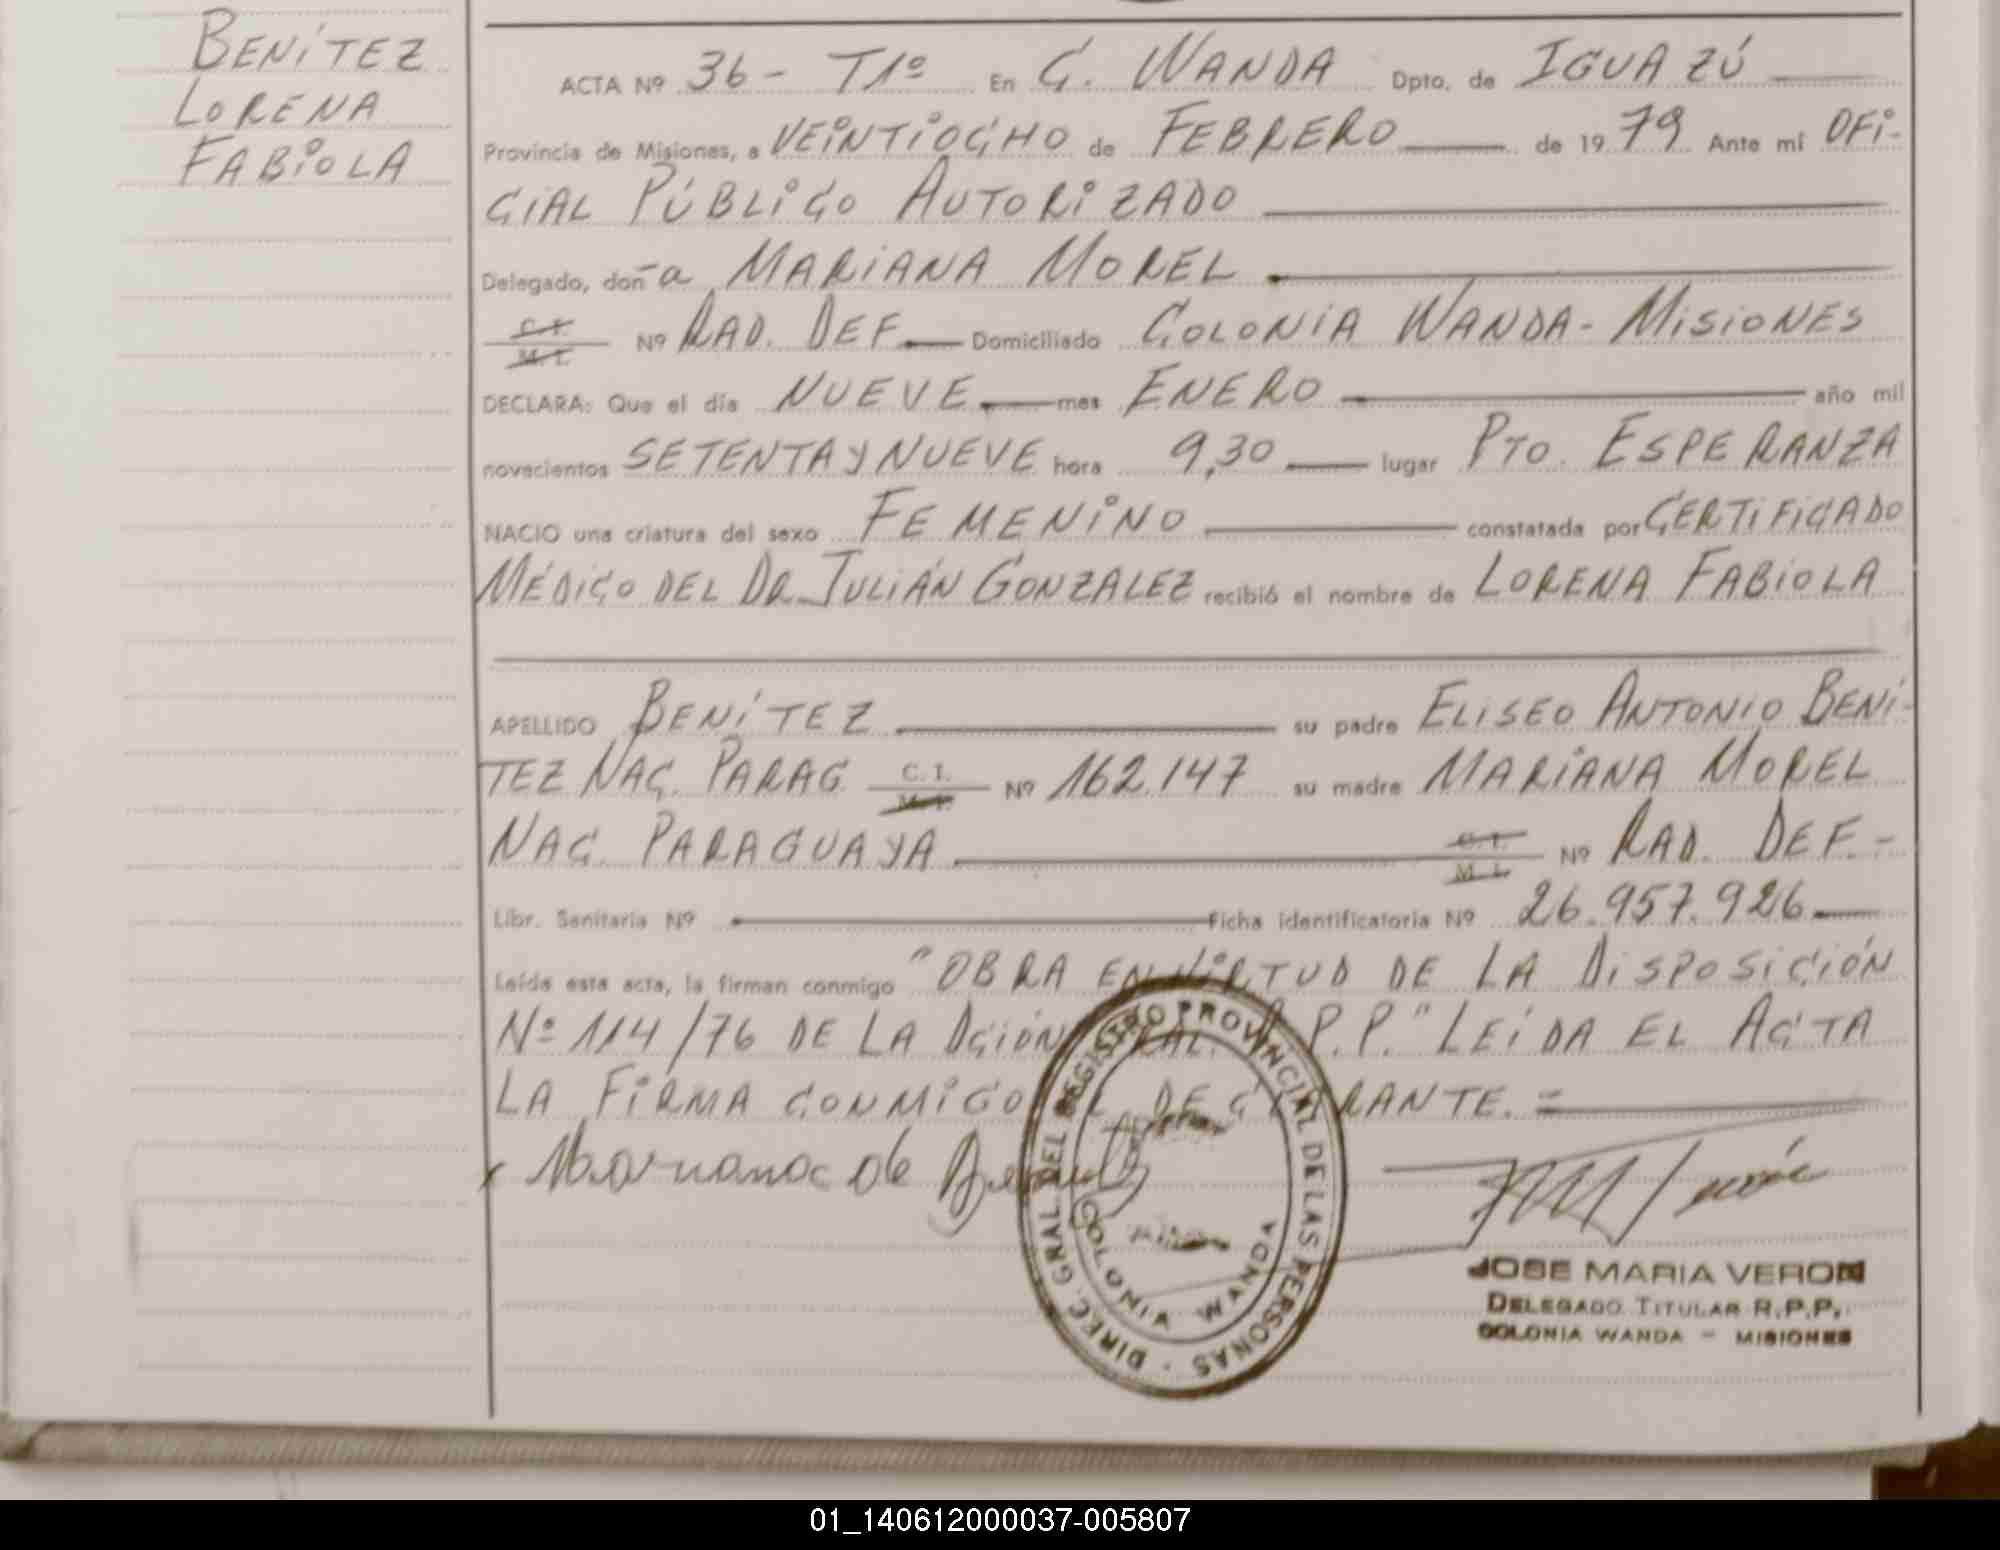 BENÍTEZ
LORENA
FABIOLA
ACTA Nº 36 - T1º En C. WANDA Dpto. de IGUAZÚ
Provincia de Misiones, a VEINTIOCHO de FEBRERO de 1979 Ante mí OFI-
CIAL PÚBLICO AUTORIZADO
Delegado, doña MARIANA MOREL
C.I.
M.I. Nº RAD. DEF. Domiciliado COLONIA WANDA - MISIONES
DECLARA: Que el día NUEVE mes ENERO año mil
novecientos SETENTA Y NUEVE hora 9,30 lugar PTO. ESPERANZA
NACIO una criatura del sexo FEMENINO constatada por CERTIFICADO
MÉDICO DEL DR. JULIÁN GONZALEZ recibió el nombre de LORENA FABIOLA
APELLIDO BENÍTEZ su padre ELISEO ANTONIO BENÍ-
TEZ NAC. PARAG. C.I.
M.I. Nº 162.147 su madre MARIANA MOREL
NAC. PARAGUAYA C.I.
M.I. Nº RAD. DEF. -
Libr. Sanitaria Nº Ficha identificatoria Nº 26.957.926
Leída esta acta, la firman conmigo "OBRA EN VIRTUD DE LA DISPOSICIÓN
Nº 114/76 DE LA DCIÓN GRAL. R.P.P." LEÍDA EL ACTA
LA FIRMA CONMIGO
Mariana de Benitez
DIREC. GRAL. DEL REGISTRO PROVINCIAL DE LAS PERSONAS
COLONIA WANDA
JOSE MARIA VERON
DELEGADO TITULAR R.P.P.
COLONIA WANDA - MISIONES
01_140612000037-005807